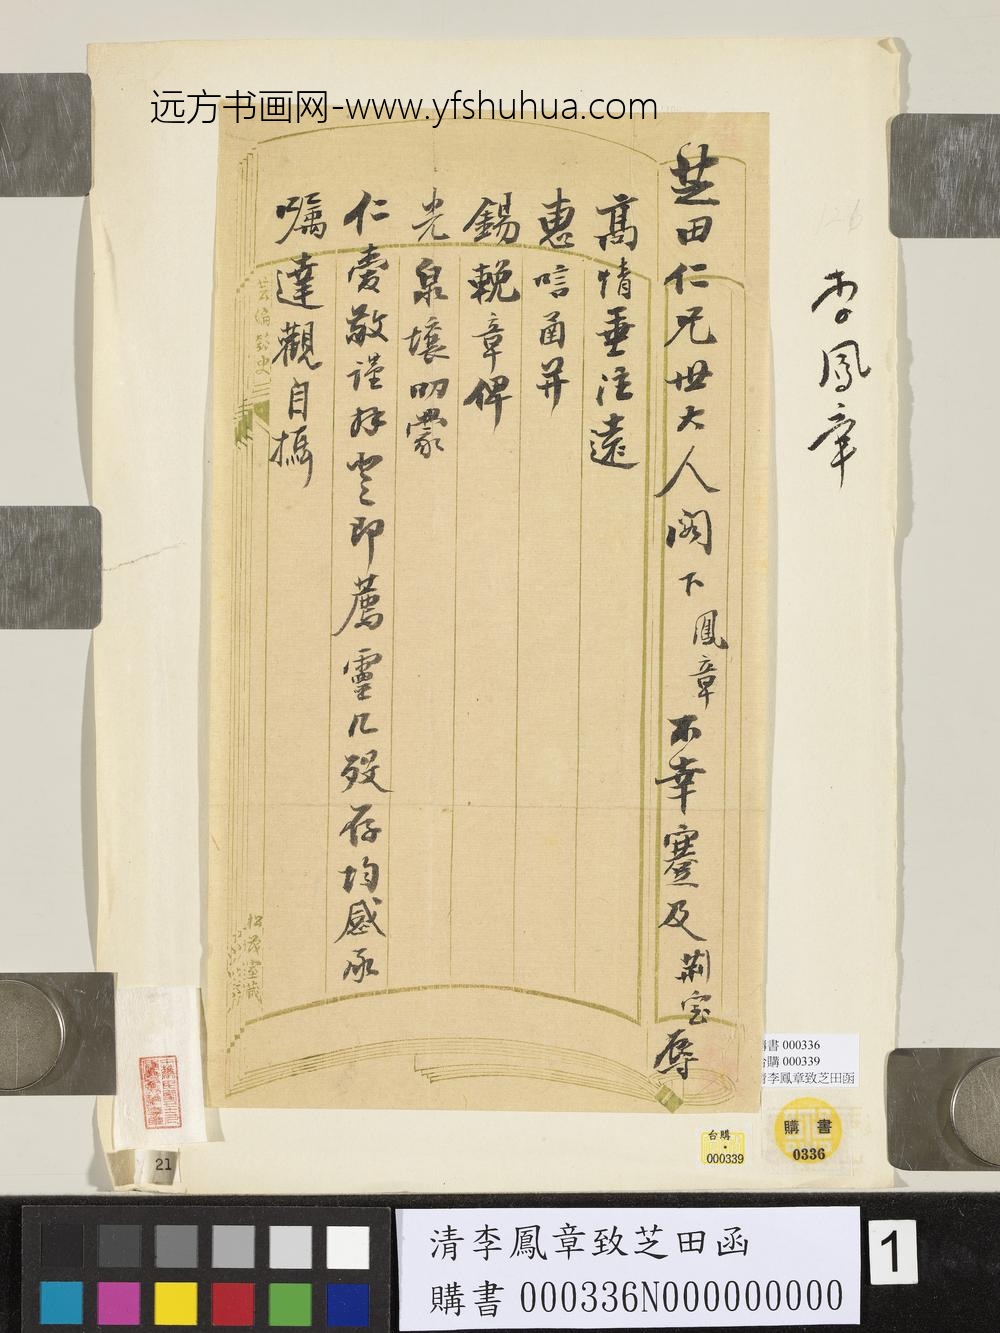 远方书画网-www.yfshuhua.com
芝田仁兄世大人阁下鳳章不幸蹇及荆室辱
高情垂注遠
惠唁函并
錫輓章俾
光泉壤叨蒙
仁愛敬謹拜登即薦靈几殁存均感承
嘱達觀自攝
李鳳章
松茂室藏
購書 000336
台購 000339
清李鳳章致芝田函
台購
000339
購書
0336
21
清李鳳章致芝田函
購書 000336N000000000
1